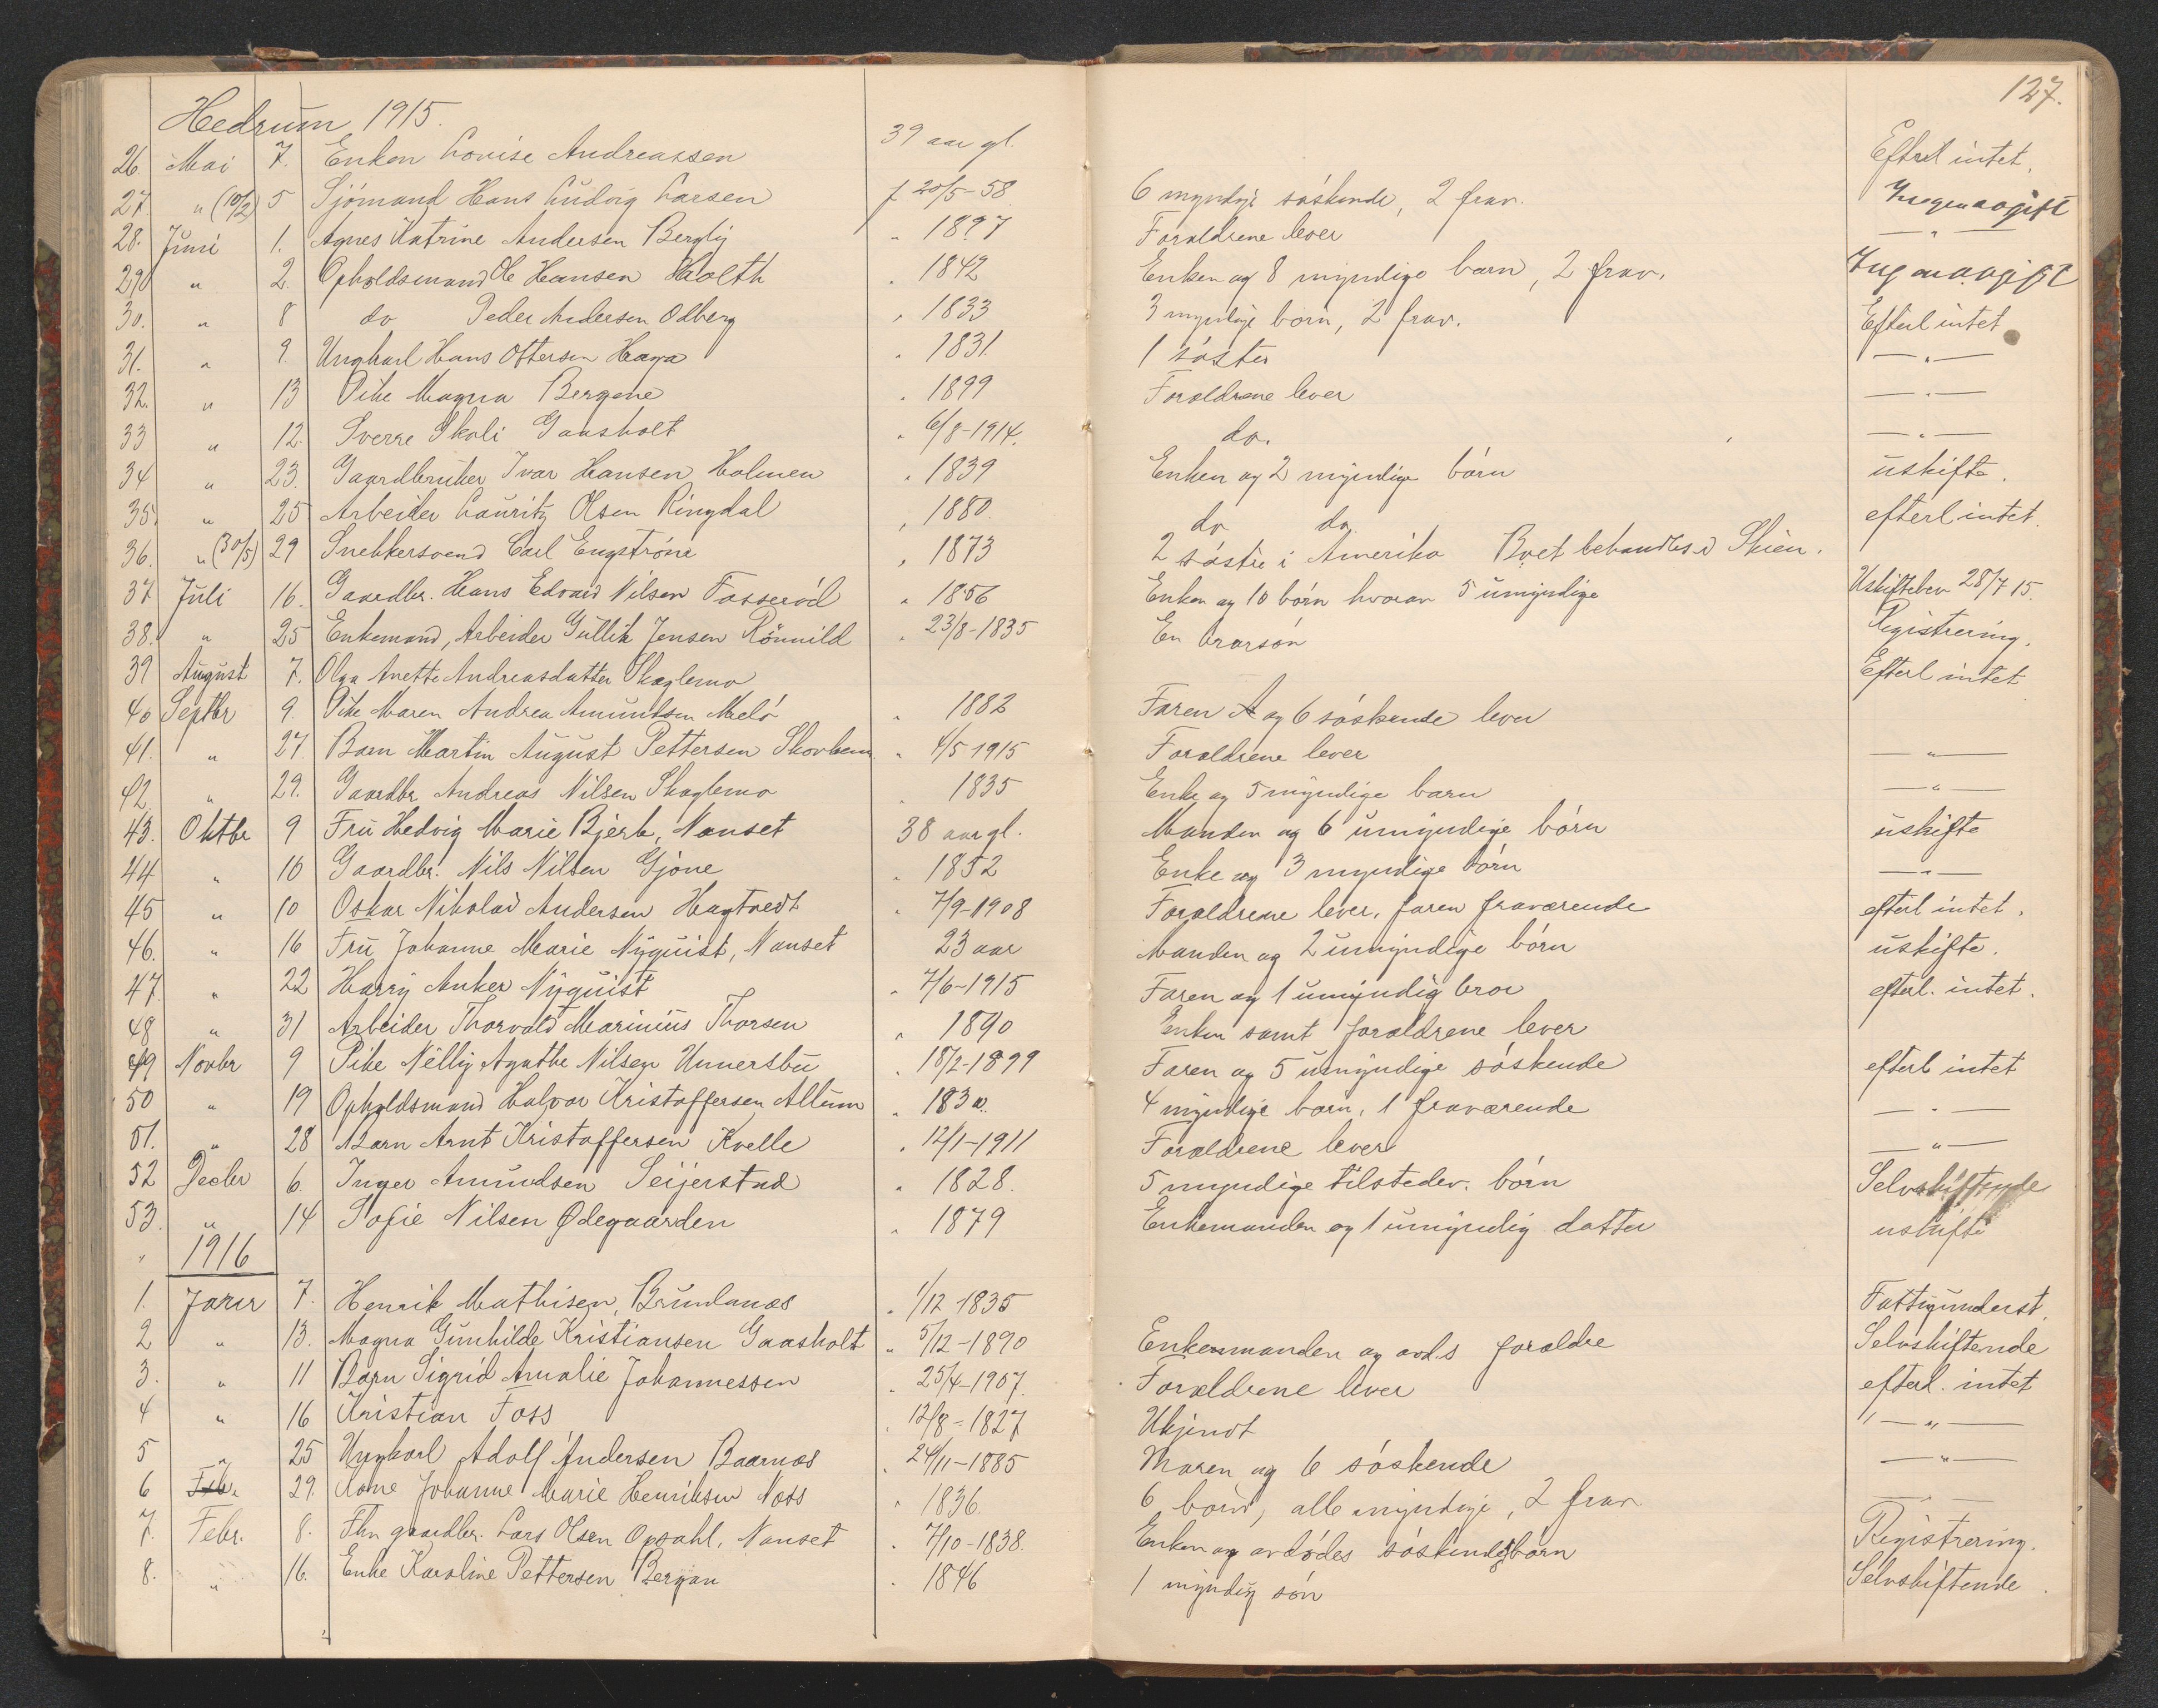 127.
Hedrum 1915.
26. Mai 7. Enken Lovise Andreassen 39 aar gl. Efterl intet.
27. " (10/2) 5 Sjömand Hans Ludvig Larsen f 20/5-58 6 myndige söskende, 2 frav. Ingen avgift
28. Juni 1. Agnes Katrine Andersen Bergly " 1897 Forældrene lever —"—
29 " 2. Opholdsmand Ole Hansen Holth " 1842 Enken og 8 myndige barn, 2 frav. Ingen avgift
30. " 8 do Peder Andersen Odberg " 1833 3 myndige born, 2 frav. Efterl intet
31. " 9. Ungkarl Hans Ottersen Haga " 1831 1 söster —"—
32. " 13 Pike Magna Bergene " 1899 Forældrene lever —"—
33 " 12. Sverre Skoli Gaasholt " 6/8-1914. do. —"—
34 " 23. Gaardbruker Ivar Hansen Holmen " 1839 Enken og 2 myndige börn uskifte.
35. " 25 Arbeider Lauritz Olsen Ringdal " 1880. do do efterl intet.
36. " (30/5) 29 Snekkersvend Carl Engström " 1873 2 söstre i Amerika Boet behandles i Skien.
37 Juli 16. Gaardbr. Hans Edvard Nilsen Fosseröd " 1856 Enken og 10 börn hvorav 5 umyndige Uskiftebev 28/7 15.
38. " 25 Enkemand, Arbeider Gullik Jensen Rönnild " 23/8-1835 En brorsön Registrering.
39 August 7. Olga Anette Andreasdatter Skaglemo Efterl intet
40 Septbr 9. Pike Maren Andrea Amundsen Melö " 1882 Faren og 6 söskende lever
41. " 27. Barn Martin August Pettersen Skovheim " 4/5 1915 Forældrene lever —"—
42. " 29. Gaardbr Andreas Nilsen Skaglemo " 1835 Enke og 5 myndige barn —"—
43. Oktbr 9 Fru Hedvig Marie Bjerk, Nanset 38 aar gl. Manden og 6 umyndige börn uskifte
44 " 10 Gaardbr. Nils Nilsen Gjöne " 1852 Enke og 3 myndige börn —"—
45 " 10 Oskar Nikolai Andersen Hagtvedt " 7/9-1908 Forældrene lever, faren fraværende efterl intet.
46. " 16 Fru Johanne Marie Nyquist, Nanset 23 aar Manden og 2 umyndige börn uskifte.
47. " 22 Harry Anker Nyquist " 7/6-1915 Faren og 1 umyndig bror efterl. intet.
48 " 31 Arbeider Thorvald Marinius Thorsen " 1890 Enken samt forældrene lever
49 Novbr 9 Pike Nelly Agathe Nilsen Unnersbu " 18/2-1899 Faren og 5 umyndige söskende efterl intet
50 " 19 Opholdsmand Halvor Kristoffersen Allum " 1830. 4 myndige barn, 1 fraværende —"—
51. " 28 Barn Arnt Kristoffersen Kvelle " 12/1-1911 Forældrene lever —"—
52 Decbr 6. Inger Amundsen Seijerstad " 1828. 5 myndige tilstedev. börn Selvskiftende
53. " 14 Sofie Nilsen Ødegaarden " 1879 Enkemanden og 1 umyndig datter uskifte
" 1916
1. Januar 7. Henrik Mathisen, Brunlanæs " 1/12 1835 Fattigunderst.
2 " 13. Magna Gunhilde Kristiansen Gaasholt " 5/12-1890 Enkemanden og avd.s forældre Selvskiftende
3. " 11 Barn Sigrid Amalie Johannessen " 25/4-1907. Forældrene lever efterl. intet
4 " 16 Kristian Foss " 12/8-1827 Ukjendt "—"—
5 " 25 Ungkarl Adolf Andersen Baarnæs " 24/11-1885 Moren og 6 söskende —"—
6 Feb. 29. Kone Johanne Marie Henriksen Næss " 1836. 6 börn, alle myndige, 2 frav —"—
7. Febr. 8. Fhv gaardbr. Lars Olsen Opsahl, Nanset " 7/10-1838. Enken og avdödes söskendebörn Registrering.
8. " 16. Enke Karoline Pettersen Bergan " 1846 1 myndig sön Selvskiftende.